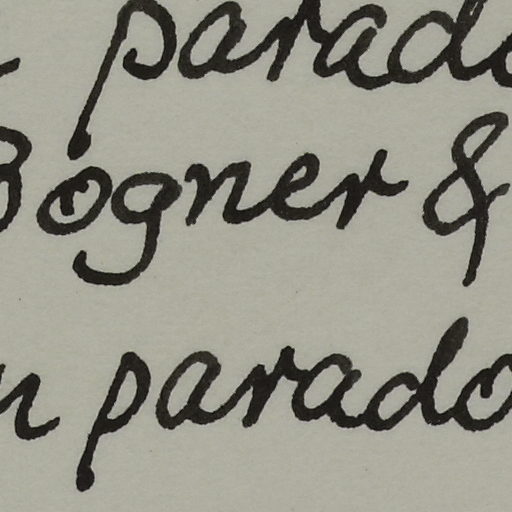 parado
Bogner &
n parado